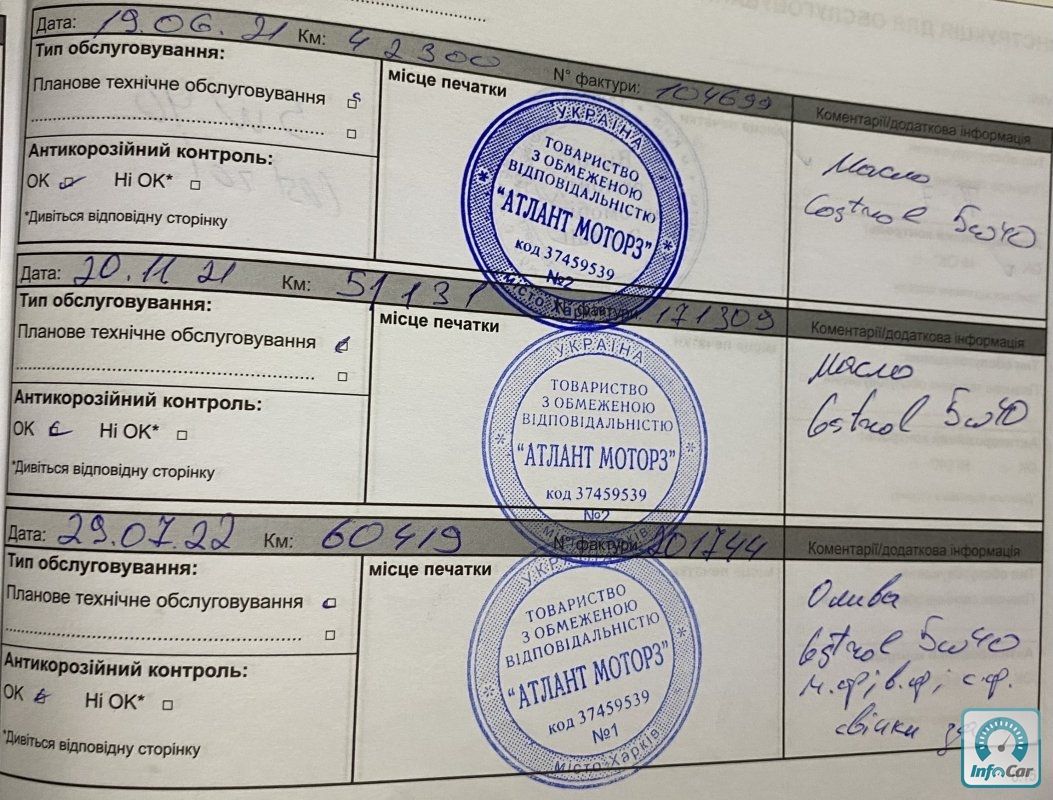 Дата: 19.06.21 Км: 42300 N° фактури: 104699
Тип обслуговування:
місце печатки
Коментарії/додаткова інформація
Планове технічне обслуговування
Антикорозійний контроль:
ОК Ні ОК*
*Дивіться відповідну сторінку
УКРАЇНА
ТОВАРИСТВО
З ОБМЕЖЕНОЮ
ВІДПОВІДАЛЬНІСТЮ
"АТЛАНТ МОТОРЗ"
код 37459539
№2
місто Харків
Масло
Castrol 5w40
Дата: 20.11 21 Км: 51131 N° фактури: 171309
Тип обслуговування:
місце печатки
Коментарії/додаткова інформація
Планове технічне обслуговування
Антикорозійний контроль:
ОК Ні ОК*
*Дивіться відповідну сторінку
УКРАЇНА
ТОВАРИСТВО
З ОБМЕЖЕНОЮ
ВІДПОВІДАЛЬНІСТЮ
"АТЛАНТ МОТОРЗ"
код 37459539
№2
місто Харків
Масло
Castrol 5w40
Дата: 29.07.22 Км: 60419 N° фактури: 201744
Тип обслуговування:
місце печатки
Коментарії/додаткова інформація
Планове технічне обслуговування
Антикорозійний контроль:
ОК Ні ОК*
*Дивіться відповідну сторінку
УКРАЇНА
ТОВАРИСТВО
З ОБМЕЖЕНОЮ
ВІДПОВІДАЛЬНІСТЮ
"АТЛАНТ МОТОРЗ"
код 37459539
№1
місто Харків
Олива
Castrol 5w40
м.ф; в.ф; с.ф.
свічки
InfoCar